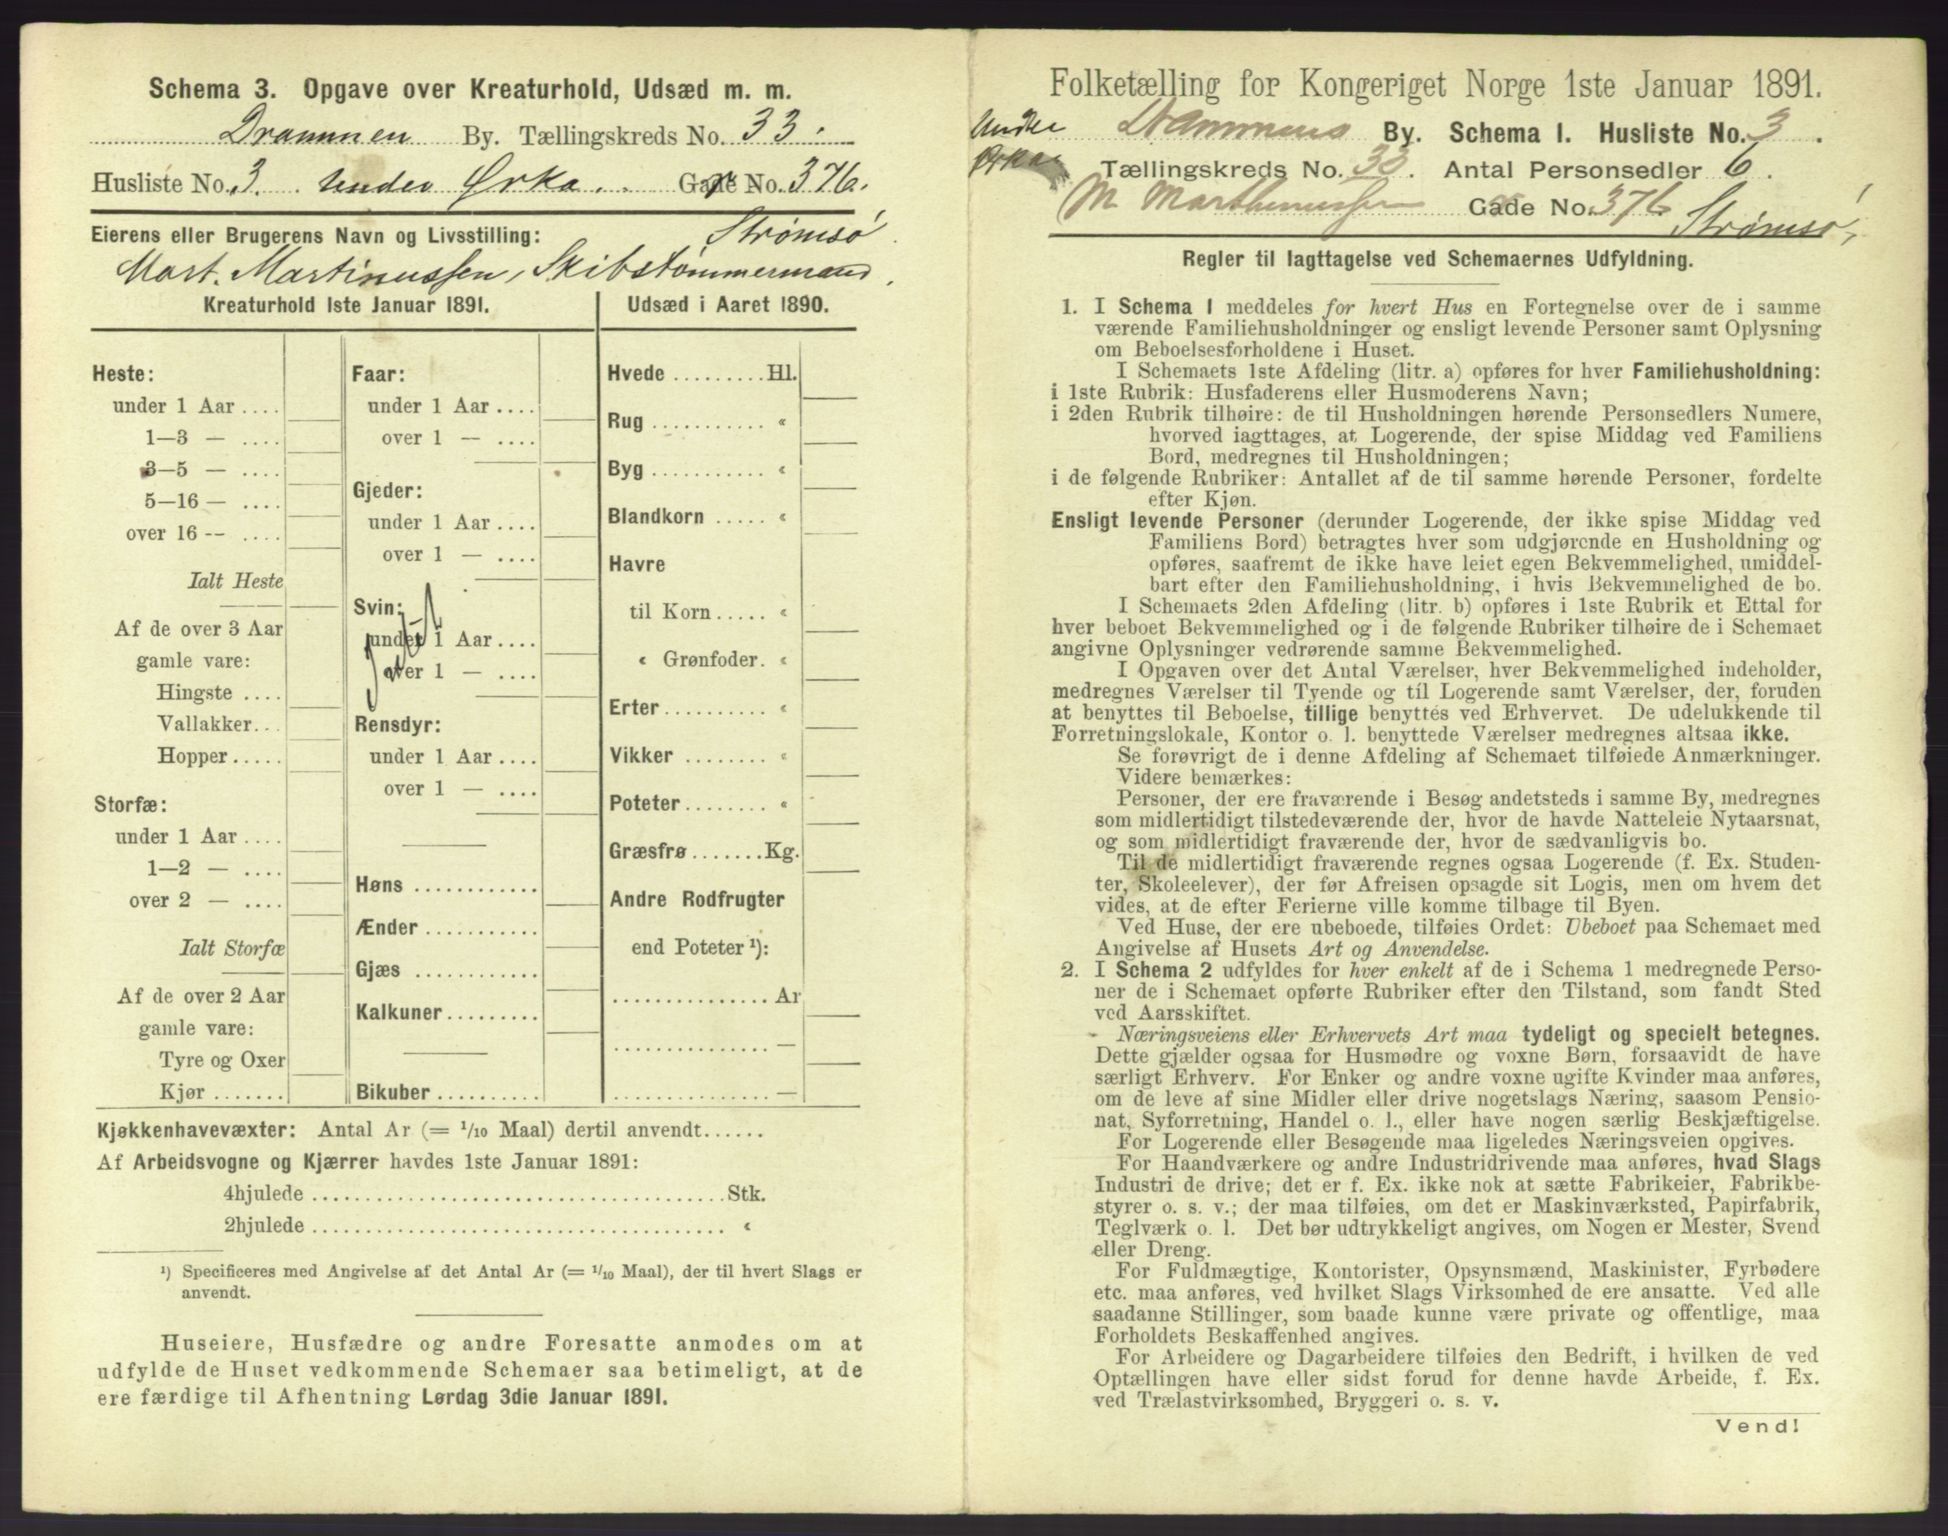 Schema 3. Opgave over Kreaturhold, Udsæd m. m.
Drammen By. Tællingskreds No. 33.
Husliste No. 3. Under Ørka. Gade No. 376.
Strømsø
Eierens eller Brugerens Navn og Livsstilling:
Mart. Martinussen, Skibstømmermand.
Kreaturhold 1ste Januar 1891.
Heste:
under 1 Aar ....
1—3 — ....
3—5 — ....
5—16 — ....
over 16 -- ....
Ialt Heste
Af de over 3 Aar
gamle vare:
Hingste ....
Vallakker...
Hopper.....
Storfæ:
under 1 Aar ....
1—2 — ....
over 2 — ....
Ialt Storfæ
Af de over 2 Aar
gamle vare:
Tyre og Oxer
Kjør .......
Faar:
under 1 Aar ....
over 1 — ....
Gjeder:
under 1 Aar ....
over 1 — ....
Svin:
under 1 Aar ....
over 1 — ....
Rensdyr:
under 1 Aar ....
over 1 — ....
Høns ............
Ænder ...........
Gjæs ............
Kalkuner.........
Bikuber ..........
Udsæd i Aaret 1890.
Hvede .........Hl.
Rug ........... «
Byg ........... «
Blandkorn ..... «
Havre
til Korn..... «
« Grønfoder. «
Erter.......... «
Vikker ........ «
Poteter........ «
Græsfrø .......Kg.
Andre Rodfrugter
end Poteter ¹):
................ Ar
................ —
................ —
Kjøkkenhavevæxter: Antal Ar (= 1/10 Maal) dertil anvendt......
Af Arbeidsvogne og Kjærrer havdes 1ste Januar 1891:
4hjulede ..........................................Stk.
2hjulede .......................................... «
¹) Specificeres med Angivelse af det Antal Ar (= 1/10 Maal), der til hvert Slags er
anvendt.
Huseiere, Husfædre og andre Foresatte anmodes om at
udfylde de Huset vedkommende Schemaer saa betimeligt, at de
ere færdige til Afhentning Lørdag 3die Januar 1891.
Folketælling for Kongeriget Norge 1ste Januar 1891.
Under Drammens By. Schema I. Husliste No. 3.
Ørka Tællingskreds No. 33. Antal Personsedler 6.
M Marthinussen Gade No. 376 Strømsø,
Regler til Iagttagelse ved Schemaernes Udfyldning.
1. I Schema 1 meddeles for hvert Hus en Fortegnelse over de i samme
værende Familiehusholdninger og ensligt levende Personer samt Oplysning
om Beboelsesforholdene i Huset.
I Schemaets 1ste Afdeling (litr. a) opføres for hver Familiehusholdning:
i 1ste Rubrik: Husfaderens eller Husmoderens Navn;
i 2den Rubrik tilhøire: de til Husholdningen hørende Personsedlers Numere,
hvorved iagttages, at Logerende, der spise Middag ved Familiens
Bord, medregnes til Husholdningen;
i de følgende Rubriker: Antallet af de til samme hørende Personer, fordelte
efter Kjøn.
Ensligt levende Personer (derunder Logerende, der ikke spise Middag ved
Familiens Bord) betragtes hver som udgjørende en Husholdning og
opføres, saafremt de ikke have leiet egen Bekvemmelighed, umiddel-
bart efter den Familiehusholdning, i hvis Bekvemmelighed de bo.
I Schemaets 2den Afdeling (litr. b) opføres i 1ste Rubrik et Ettal for
hver beboet Bekvemmelighed og i de følgende Rubriker tilhøire de i Schemaet
angivne Oplysninger vedrørende samme Bekvemmelighed.
I Opgaven over det Antal Værelser, hver Bekvemmelighed indeholder,
medregnes Værelser til Tyende og til Logerende samt Værelser, der, foruden
at benyttes til Beboelse, tillige benyttes ved Erhvervet. De udelukkende til
Forretningslokale, Kontor o. l. benyttede Værelser medregnes altsaa ikke.
Se forøvrigt de i denne Afdeling af Schemaet tilføiede Anmærkninger.
Videre bemærkes:
Personer, der ere fraværende i Besøg andetsteds i samme By, medregnes
som midlertidigt tilstedeværende der, hvor de havde Natteleie Nytaarsnat,
og som midlertidigt fraværende der, hvor de sædvanligvis bo.
Til de midlertidigt fraværende regnes ogsaa Logerende (f. Ex. Studen-
ter, Skoleelever), der før Afreisen opsagde sit Logis, men om hvem det
vides, at de efter Ferierne ville komme tilbage til Byen.
Ved Huse, der ere ubeboede, tilføies Ordet: Ubeboet paa Schemaet med
Angivelse af Husets Art og Anvendelse.
2. I Schema 2 udfyldes for hver enkelt af de i Schema 1 medregnede Perso-
ner de i Schemaet opførte Rubriker efter den Tilstand, som fandt Sted
ved Aarsskiftet.
Næringsveiens eller Erhvervets Art maa tydeligt og specielt betegnes.
Dette gjælder ogsaa for Husmødre og voxne Børn, forsaavidt de have
særligt Erhverv. For Enker og andre voxne ugifte Kvinder maa anføres,
om de leve af sine Midler eller drive nogetslags Næring, saasom Pensio-
nat, Syforretning, Handel o. l., eller have nogen særlig Beskjæftigelse.
For Logerende eller Besøgende maa ligeledes Næringsveien opgives.
For Haandværkere og andre Industridrivende maa anføres, hvad Slags
Industri de drive; det er f. Ex. ikke nok at sætte Fabrikeier, Fabrikbe-
styrer o. s. v.; der maa tilføies, om det er Maskinværksted, Papirfabrik,
Teglværk o. l. Det bør udtrykkeligt angives, om Nogen er Mester, Svend
eller Dreng.
For Fuldmægtige, Kontorister, Opsynsmænd, Maskinister, Fyrbødere
etc. maa anføres, ved hvilket Slags Virksomhed de ere ansatte. Ved alle
saadanne Stillinger, som baade kunne være private og offentlige, maa
Forholdets Beskaffenhed angives.
For Arbeidere og Dagarbeidere tilføies den Bedrift, i hvilken de ved
Optællingen have eller sidst forud for denne havde Arbeide, f. Ex.
ved Trælastvirksomhed, Bryggeri o. s. v.
Vend!